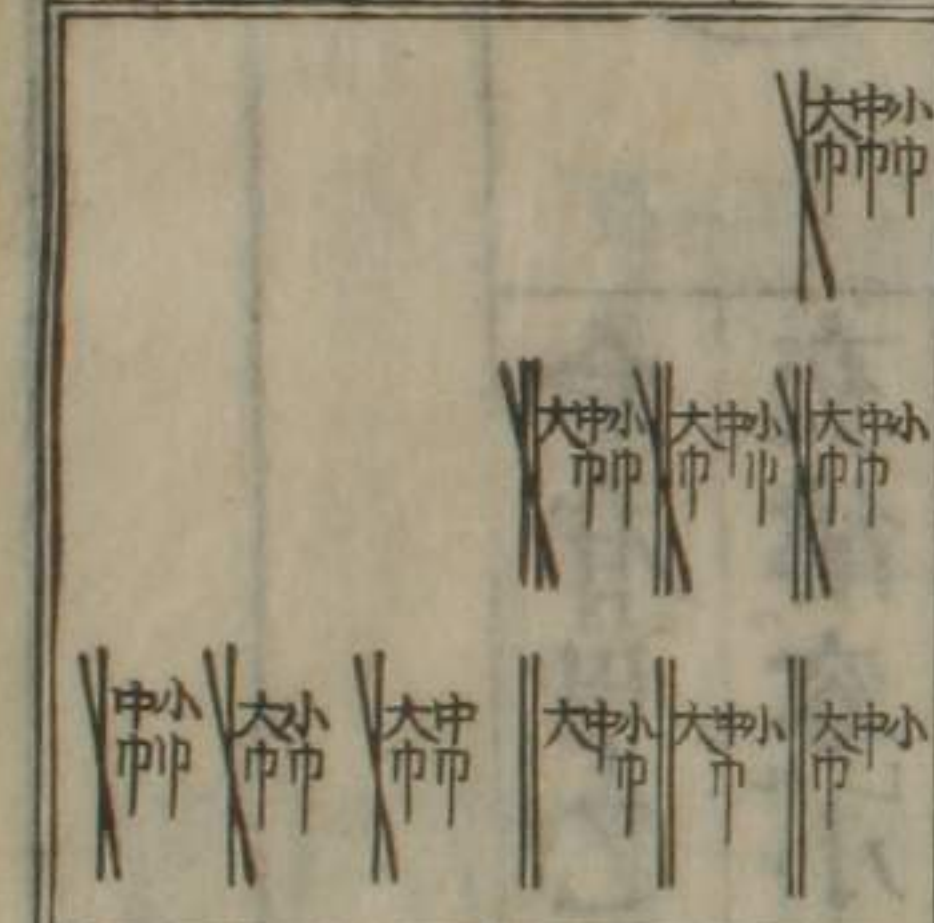 大巾中巾小巾
大巾中巾小
大巾中小巾
大中巾小巾
大巾中小
大中巾小
大中小巾
大巾中巾
大巾小巾
中巾小巾